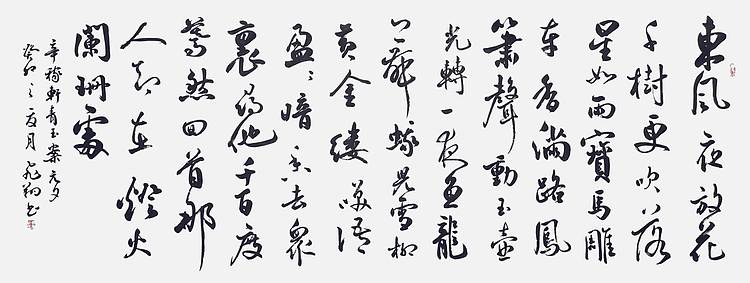 東風夜放花
千樹更吹落
星如雨寶馬雕
車香滿路鳳
簫聲動玉壺
光轉一夜魚龍
舞蛾兒雪柳
黃金縷咲語
盈〻暗香去眾
裏尋他千百度
驀然回首那
人卻在燈火
闌珊處
辛稼軒青玉案元夕
癸卯之夏月翔書